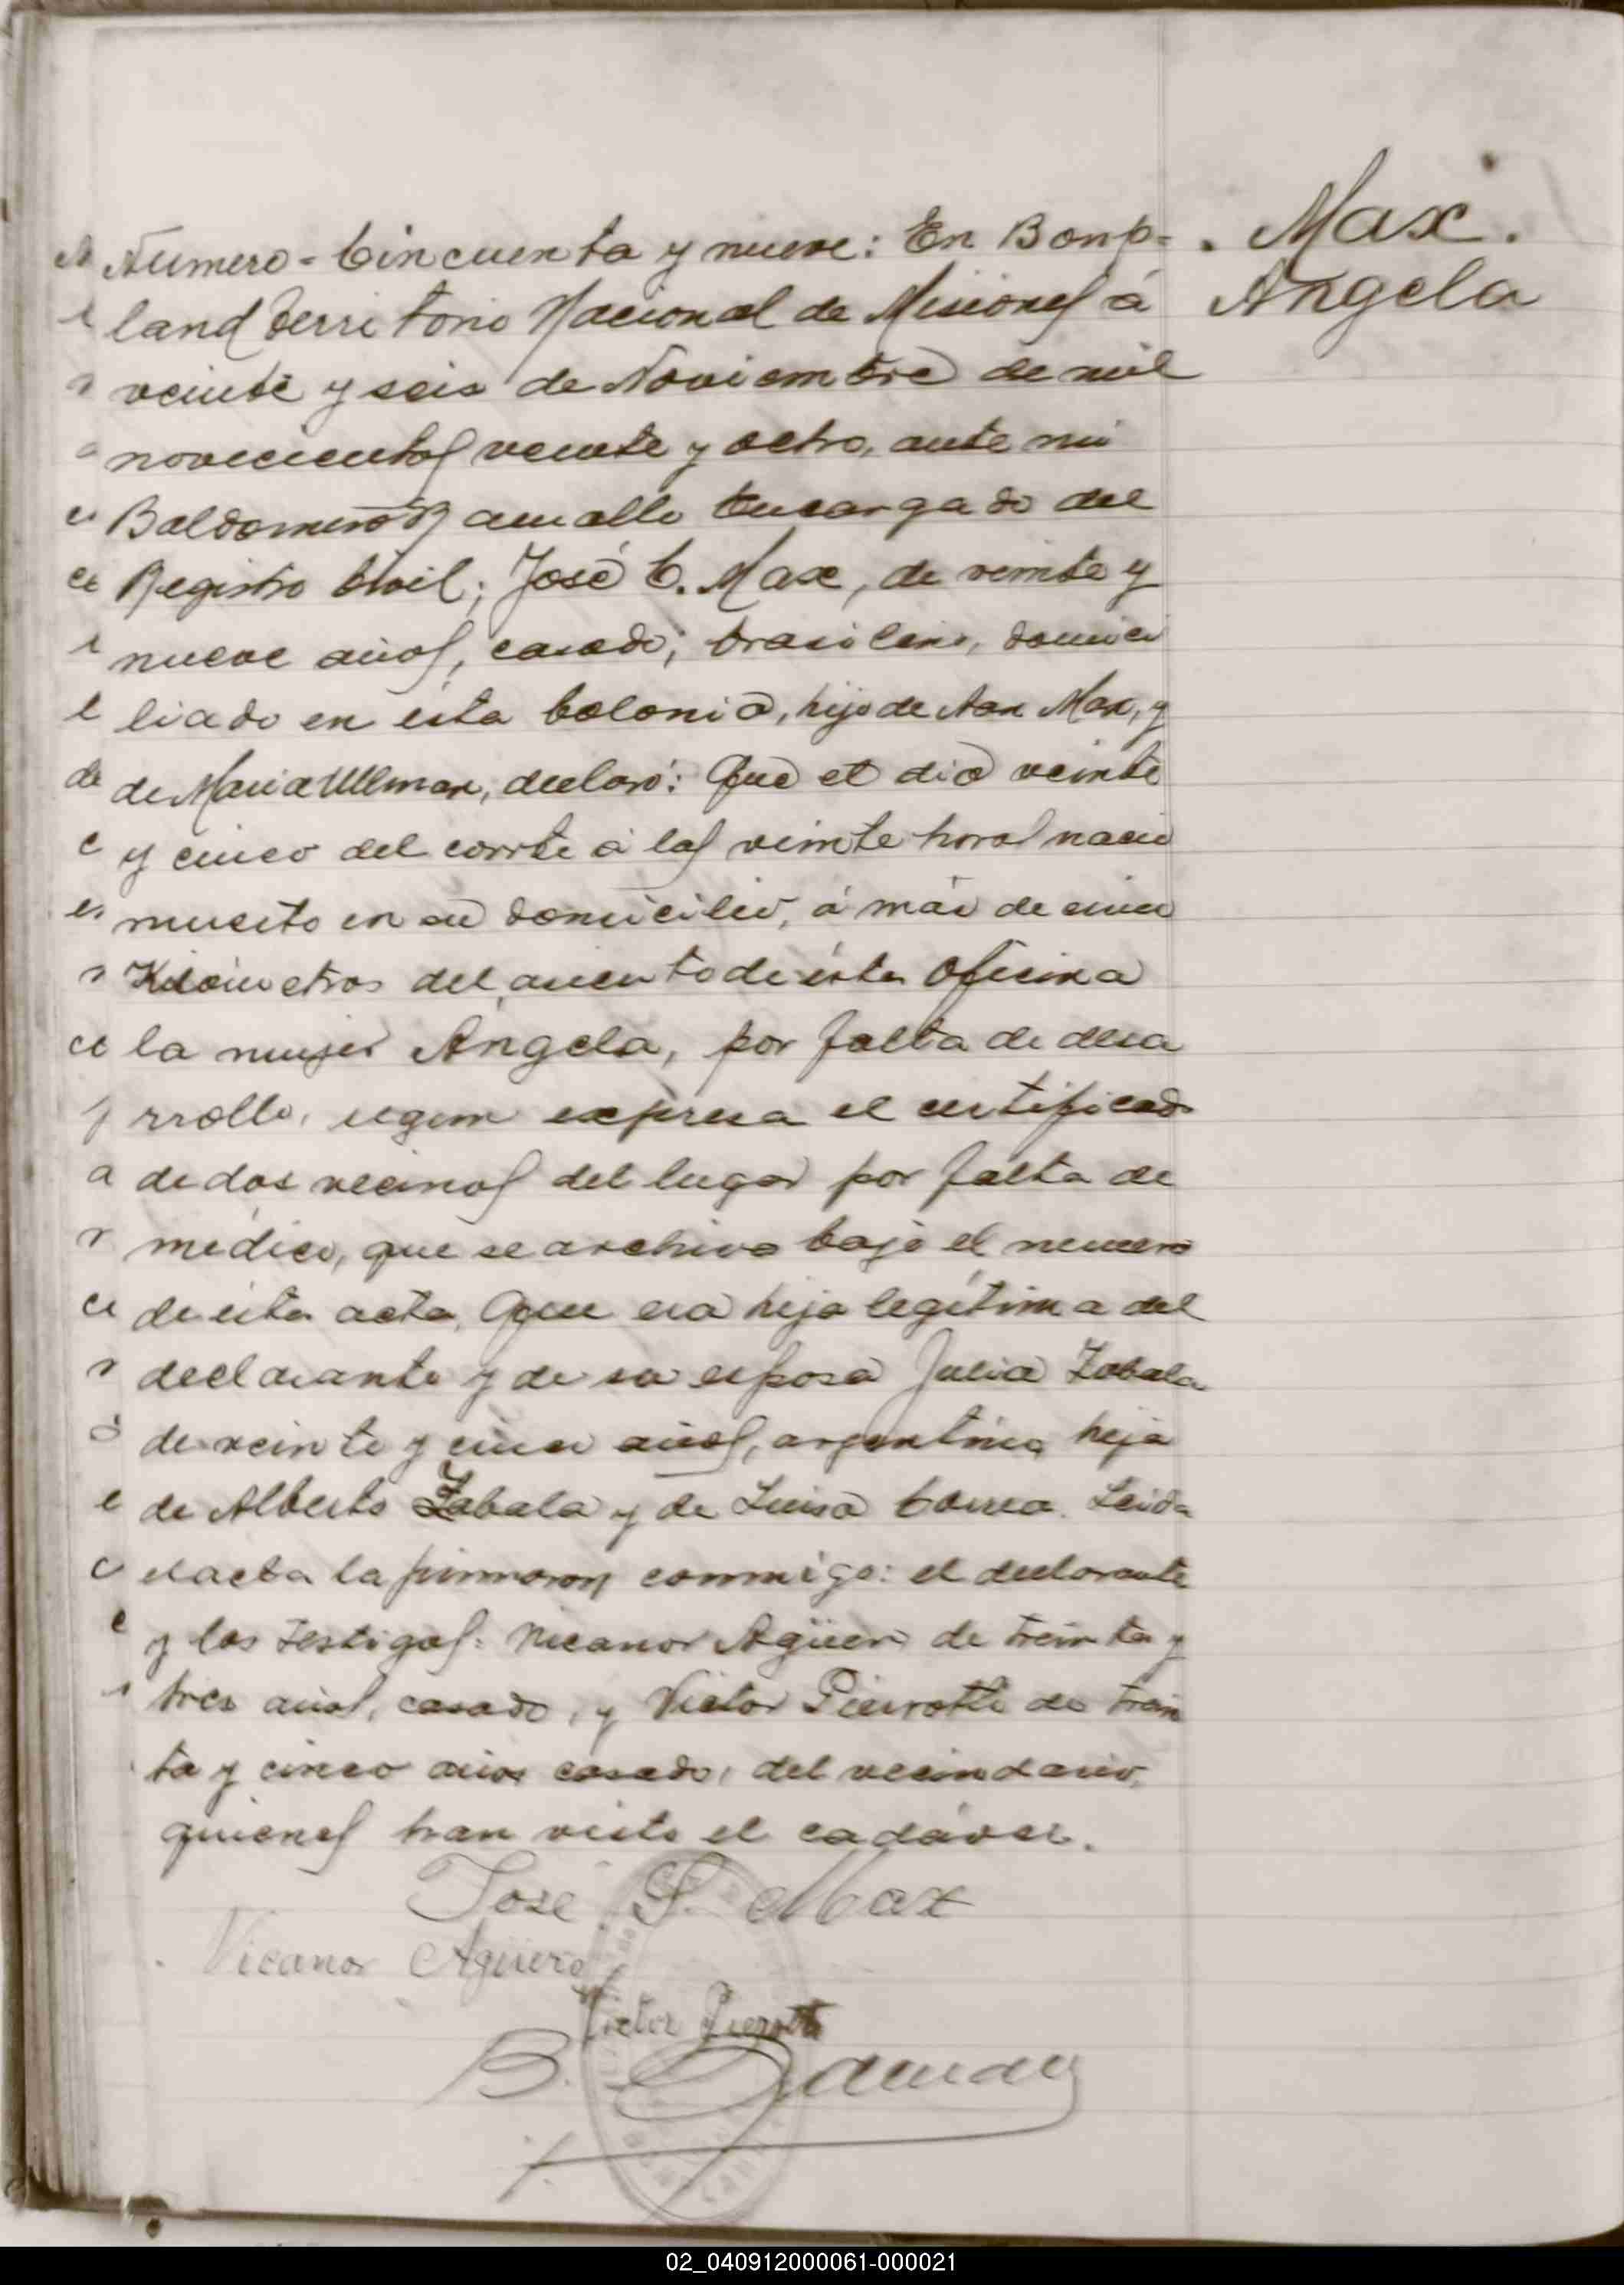 Max.
Angela
Número - Cincuenta y nueve: En Bonp-
land Territorio Nacional de Misiones á
veinte y seis de Noviembre de mil
novecientos veinte y ocho, ante mi
Baldomero Ramallo Encargado del
Registro Civil; José C. Max, de veinte y
nueve años, casado, brasilero, domici
liado en ésta Colonia, hijo de Max, y
de Maria Ullman, declaró: Que el dia veinte
y cinco del corrte á las veinte horas nació
muerto en su domicilio, á más de cinco
Kilómetros del asiento de ésta Oficina
la mujer Angela, por falta de desa
rrollo, segun expresa el certificado
de dos vecinos del lugar por falta de
médico, que se archiva bajo el numero
de ésta acta, Que era hija legítima del
declarante y de su esposa Julia Zabala
de veinte y cinco años, argentina, hija
de Alberto Zabala y de Luisa Correa. Leida
el acta la firmaron conmigo: el declarante
y los testigos: Nicanor Agüero de treinta y
tres años, casado, y Victor Pierrotti de trein
ta y cinco años casado, del vecindario,
quienes han visto el cadáver.
Jose S. Max
Nicanor Agüero
Victor Pierotti
B. Ramallo
02_040912000061-000021